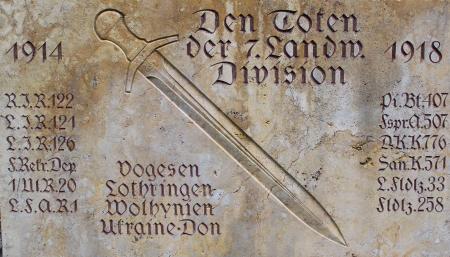 1914
Den Toten
der 7. Landw.
Division
1918
R.I.R.122
L.I.R.121
L.I.R.126
F.Rekr.Dep
1/Ul.R.20
L.F.A.R.1
Vogesen
Lothringen
Wolhynien
Ukraine-Don
Pi.Bt.407
Fspr.A.507
D.K.K.776
San.K.571
L.Fldlz.33
Fldlz.258